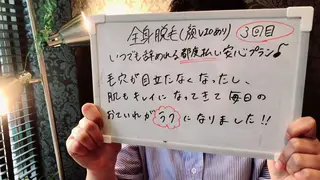 全身脱毛(顔VIOあり) 3回目
いつでも辞めれる都度払い安心プラン♪
毛穴が目立たなくなったし、
肌もキレイになってきて毎日の
おていれがラクになりました!!